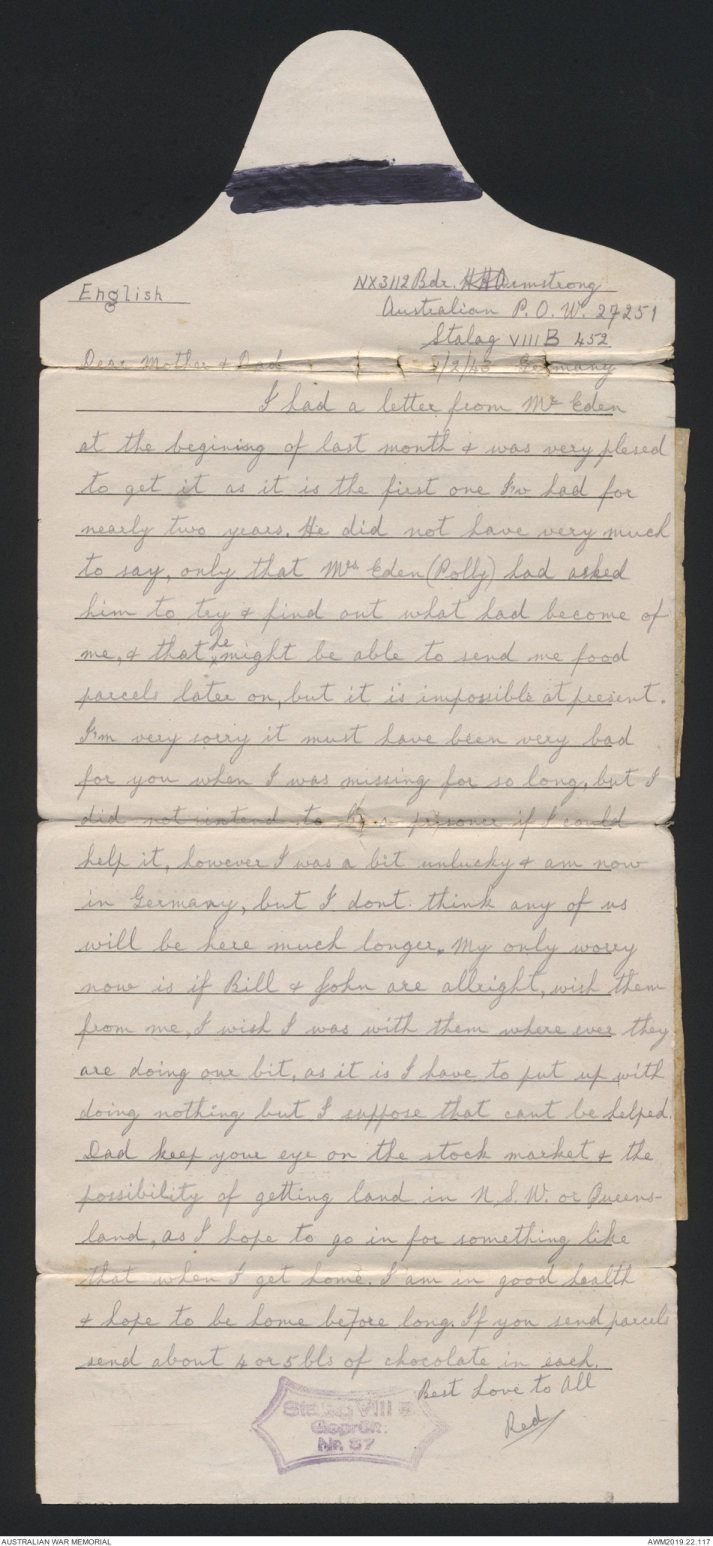 English
NX3112 Bdr. H H Armstrong
Australian P. O. W. 27251
Stalag VIII B 452
Dear Mother & Dad /2/43 Germany
I had a letter from Mr Eden
at the begining of last month & was very plesed
to get it as it is the first one I've had for
nearly two years. He did not have very much
to say, only that Mrs Eden (Polly) had asked
him to try & find out what had become of
me, & that he might be able to send me food
parcels later on, but it is impossible at present.
I'm very sorry it must have been very bad
for you when I was missing for so long, but I
did not intend to be a prisoner if I could
help it, however I was a bit unlucky & am now
in Germany, but I dont think any of us
will be here much longer. My only worry
now is if Bill & John are allright, wish them
from me, I wish I was with them where ever they
are doing our bit, as it is I have to put up with
doing nothing but I suppose that cant be helped.
Dad keep your eye on the stock market & the
possibility of getting land in N.S.W. or Queens-
land, as I hope to go in for something like
that when I get home. I am in good health
& hope to be home before long. If you send parcels
send about 4 or 5 bls of chocolate in each.
Best Love to All
Red
Stalag VIII B
Geprüft:
Nr. 37
AUSTRALIAN WAR MEMORIAL
AWM2019.22.117